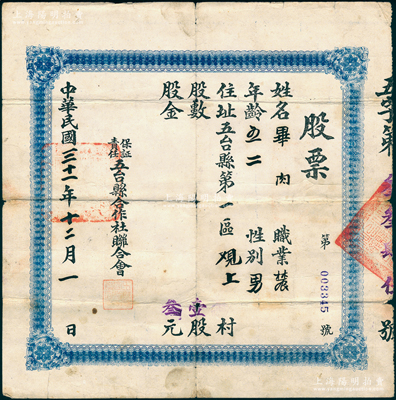 股票
第 003345 號
姓名 畢肉 職業 農
年齡 五二 性別 男
住址 五台縣第一區 观上 村
股數 壹股
股金 叁元
保証責任五台縣合作社聯合會
中華民國三十一年十二月一日
五字第
號